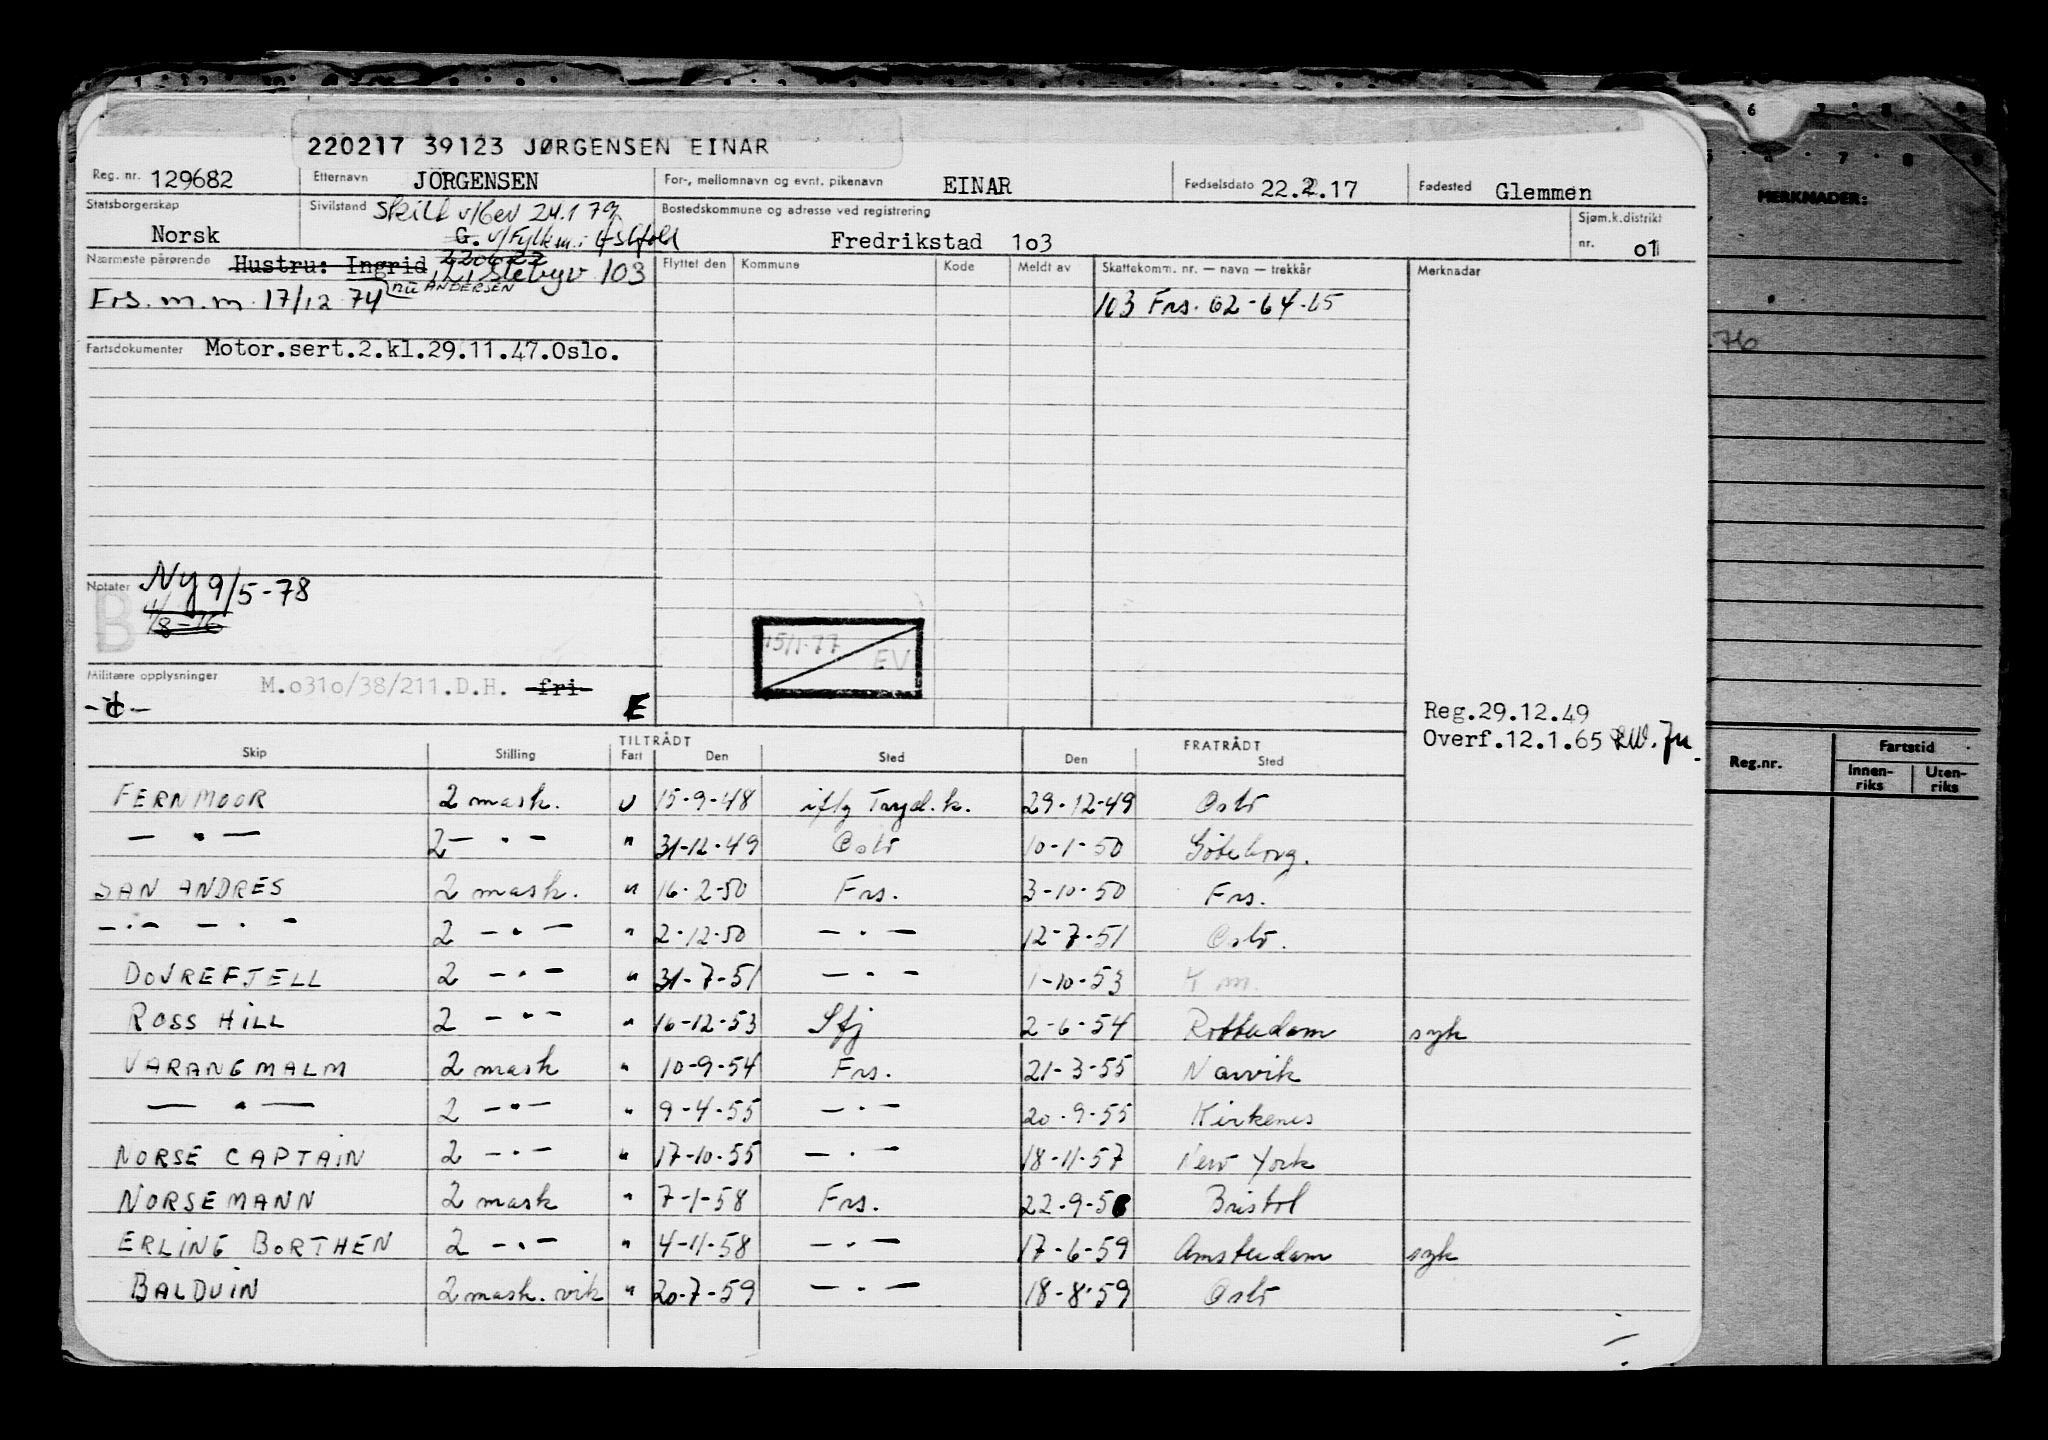 220217 39123 JØRGENSEN EINAR
Reg. nr. 129682 Etternavn JÖRGENSEN For-, mellomnavn og evnt. pikenavn EINAR Fødselsdato 22.2.17 Fødested Glemmen
Statsborgerskap Norsk Sivilstand Skilt v/bev 24.1 79 G. v/Fylkm. i Østfold Bostedskommune og adresse ved registrering Fredrikstad 1o3 Sjøm.k.distrikt nr. o1
Nærmeste pårørende Hustru: Ingrid, 103
nu ANDERSEN
Frs. m.m 17/12 74
Flyttet den Kommune Kode Meldt av Skattekomm. nr. — navn — trekkår Merknader
103 Frs. 62-64-65
Fartsdokumenter Motor.sert.2.kl.29.11.47.Oslo.
Notater Ny 9/5-78
B 4/8-76
15/1-77 EV
Militære opplysninger M.o31o/38/211.D.H. fri
E
Reg.29.12.49
Overf.12.1.65
Skip Stilling TILTRÅDT Fart Den Sted FRATRÅDT Den Sted
FERNMOOR 2 mask. U 15-9-48 iflg Trygd.k. 29-12-49 Oslo
— " — 2 — " — " 31-12-49 Oslo 10-1-50 Göteborg.
SAN ANDRES 2 mask. " 16-2-50 Frs. 3-10-50 Frs.
— " — — " — 2 — " — " 2-12-50 — " — 12-7-51 Oslo.
DOVREFJELL 2 — " — " 31-7-51 — " — 1-10-53 K m.
ROSS HILL 2 — " — " 16-12-53 Sfj 2-6-54 Rotterdam syk
VARANGMALM 2 mask " 10-9-54 Frs. 21-3-55 Narvik
— " — 2 — " — " 9-4-55 — " — 20-9-55 Kirkenes
NORSE CAPTAIN 2 — " — " 17-10-55 — " — 18-11-57 New York
NORSEMANN 2 mask " 7-1-58 Frs. 22-9-58 Bristol
ERLING BORTHEN 2 — " — " 4-11-58 — " — 17-6-59 Amsterdam syk
BALDUIN 2 mask. vik " 20-7-59 — " — 18-8-59 Oslo
6 7 8 9
7 8 9
MERKNADER:
76
Reg.nr. Fartstid
Innenriks Utenriks